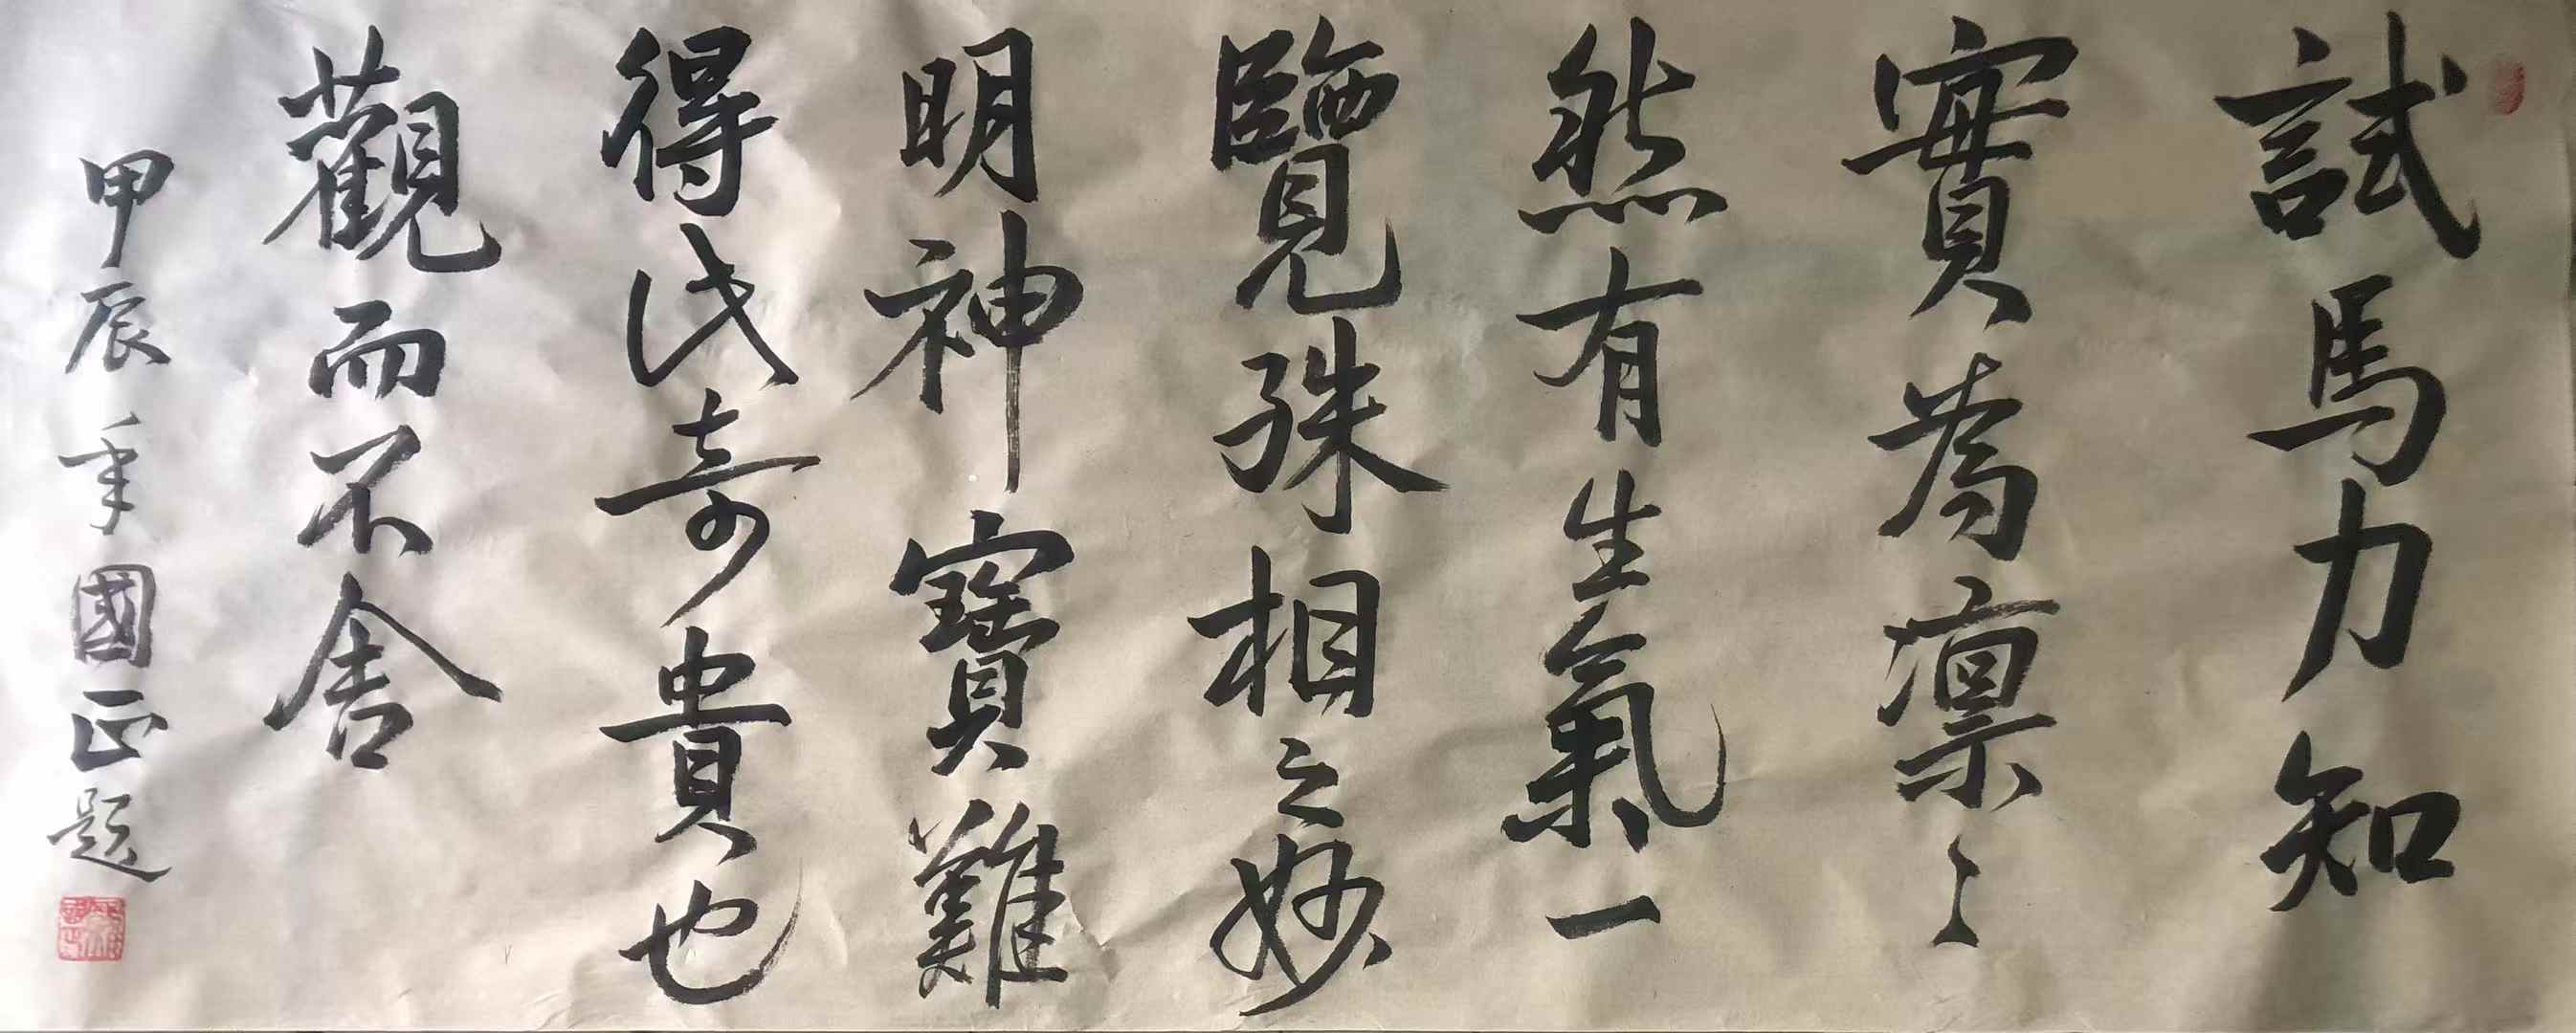 試馬力知
實為凛〻
然有生氣一
覽殊相之妙
明神寶難
得代奇貴也
觀而不舍
甲辰年國正題